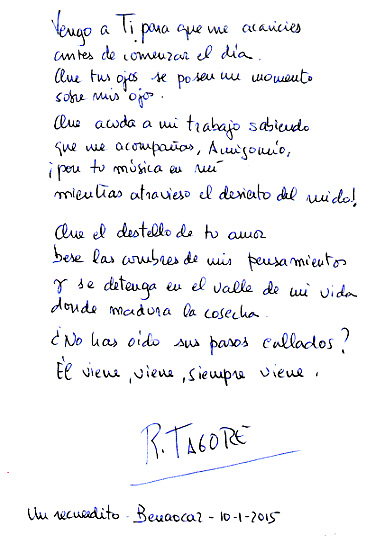 Vengo a Ti para que me acaricies
antes de comenzar el día.
Que tus ojos se posen un momento
sobre mis ojos.
Que acuda a mi trabajo sabiendo
que me acompañas, Amigomío,
¡pon tu música en mí
mientras atravieso el desierto del ruido!
Que el destello de tu amor
bese las cumbres de mis pensamientos
y se detenga en el valle de mi vida
donde madura la cosecha.
¿No has oído sus pasos callados?
Él viene, viene, siempre viene.
R. TAGORE
Un recuerdito - Benaocaz - 10-1-2015